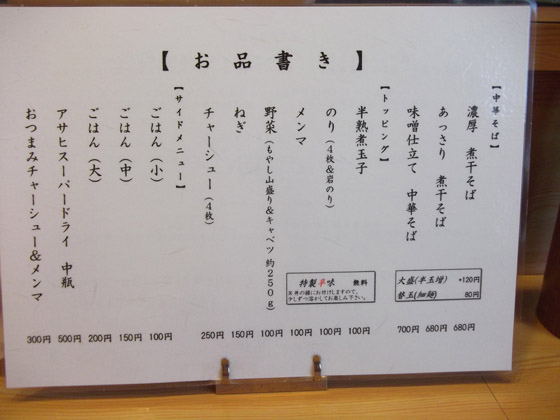 【お品書き】
【中華そば】
濃厚 煮干そば 680円
あっさり 煮干そば 680円
味噌仕立て 中華そば 700円
大盛(半玉増) +120円
替玉(細麺) 80円
【トッピング】
半熟煮玉子 100円
のり(4枚&岩のり) 100円
メンマ 100円
野菜(もやし山盛り&キャベツ 約250g) 100円
ねぎ 150円
チャーシュー(4枚) 250円
特製辛味 無料
丼の縁にお付けしますので、
少しずつ溶かしてお楽しみ下さい。
【サイドメニュー】
ごはん(小) 100円
ごはん(中) 150円
ごはん(大) 200円
アサヒスーパードライ 中瓶 500円
おつまみチャーシュー&メンマ 300円